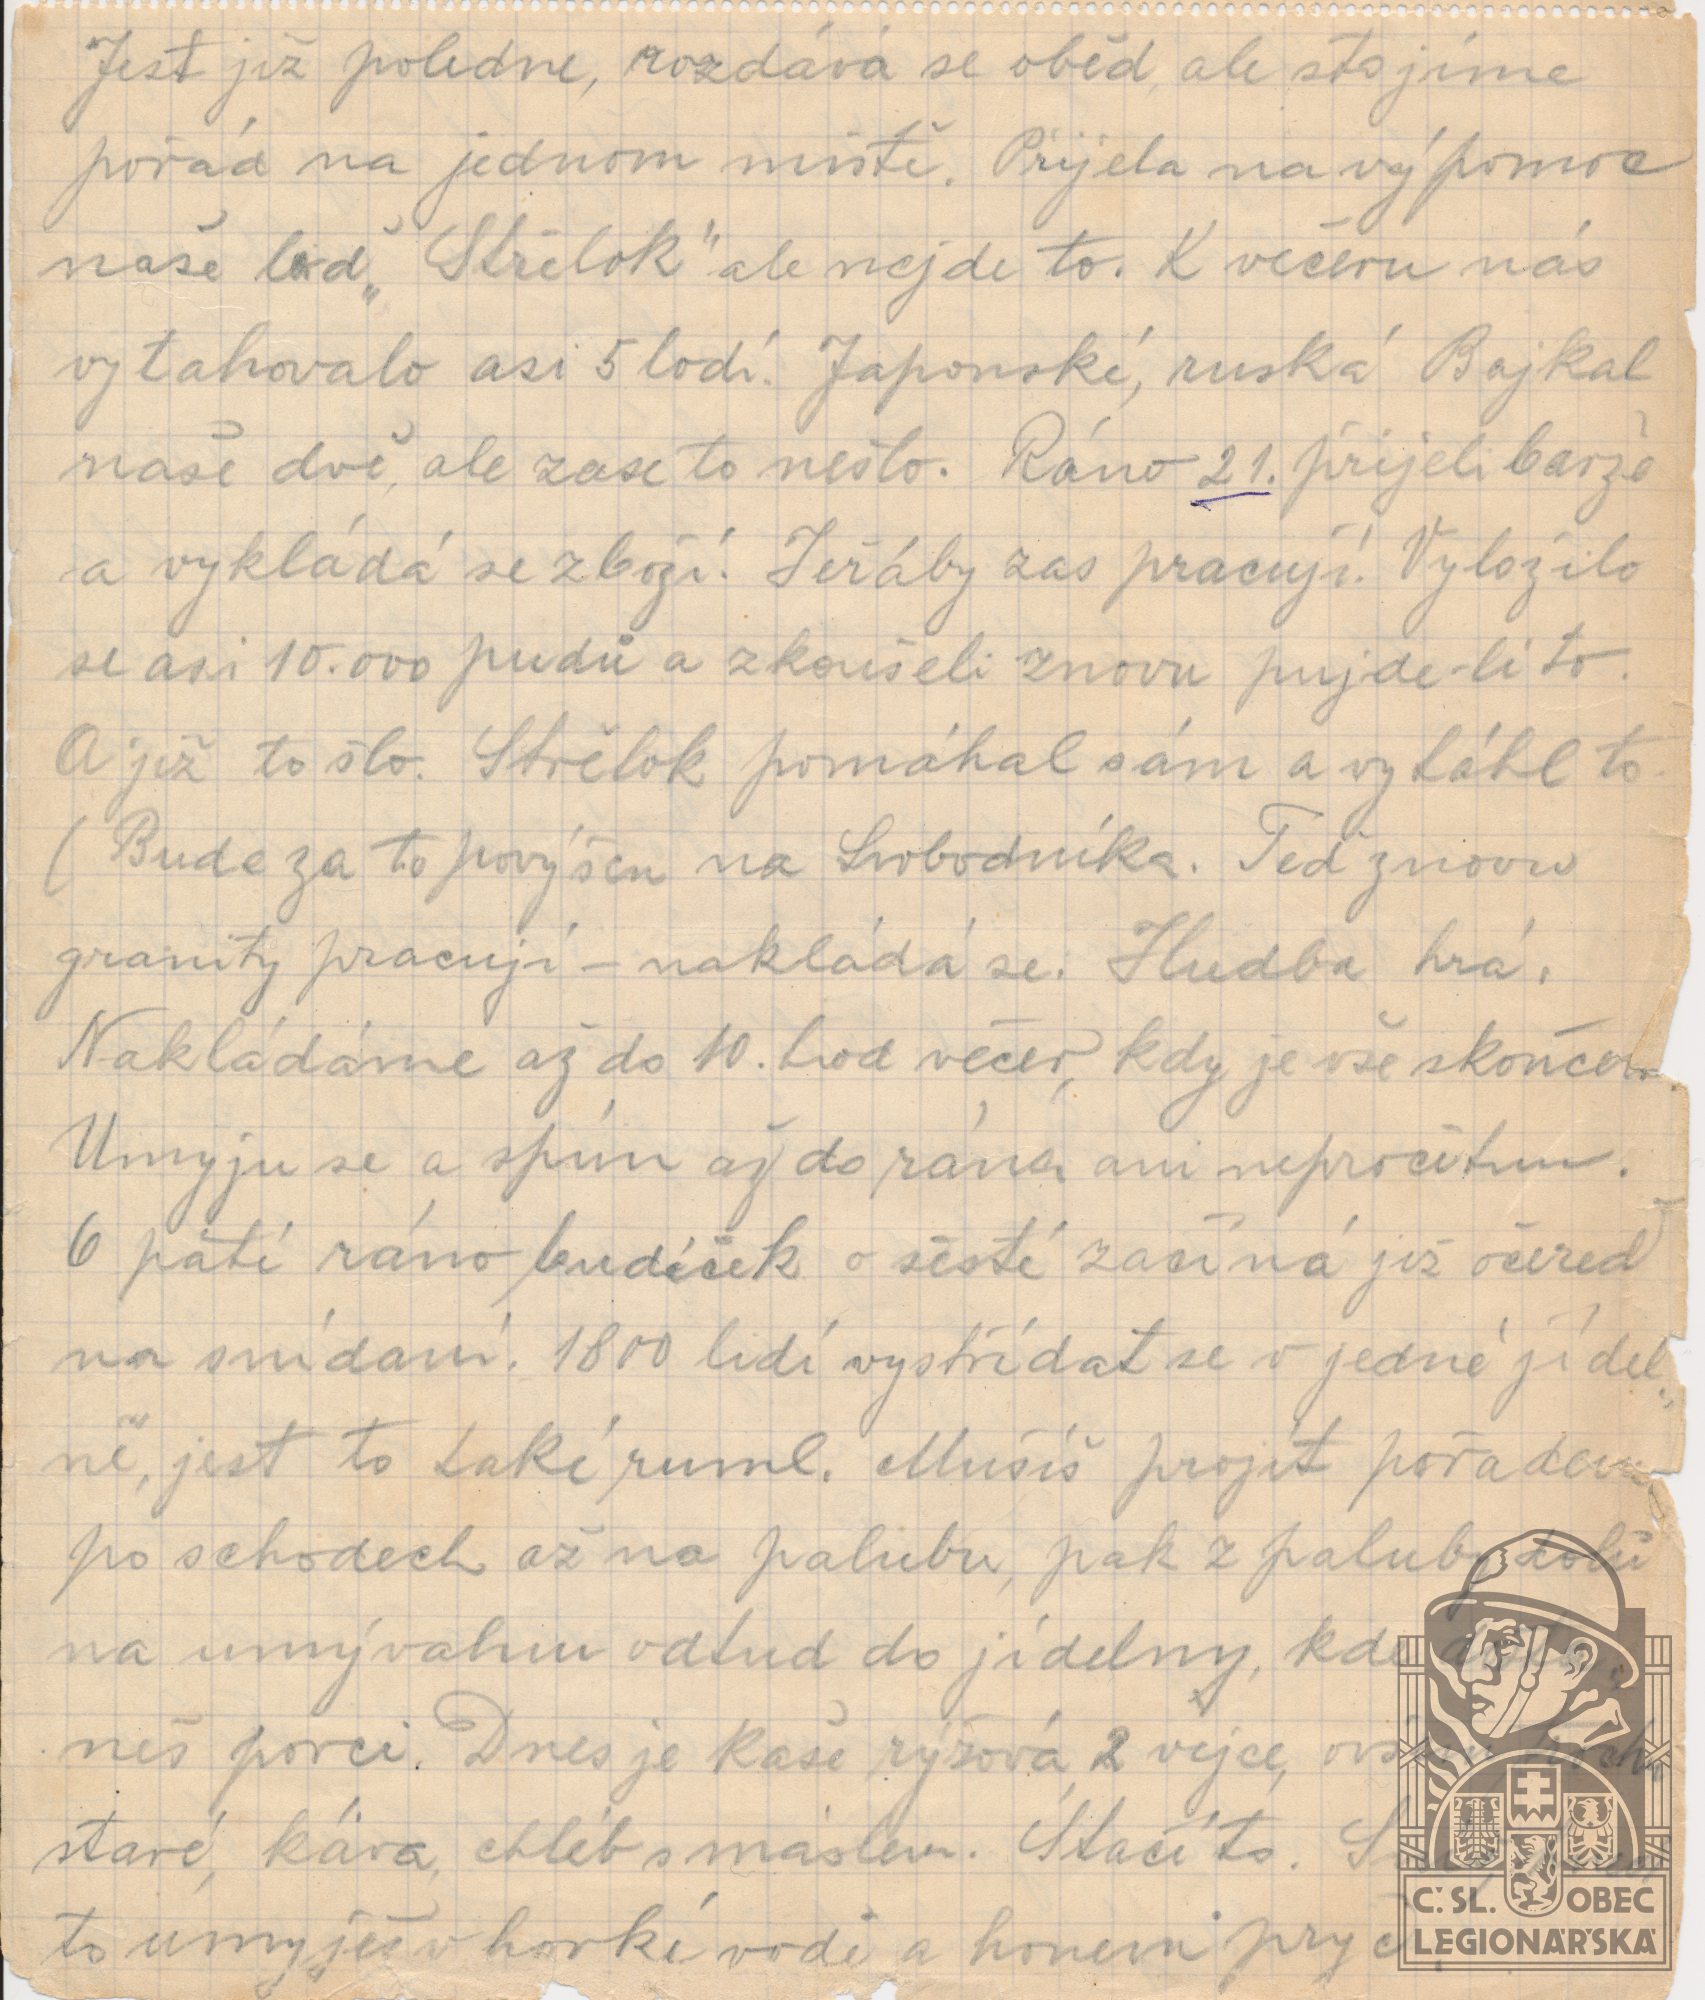 Jest již poledne, rozdává se oběd, ale stojíme
pořád na jednom místě. Přijela na výpomoc
naše loď „Střelok" ale nejde to. K večeru nás
vytahovalo asi 5 lodí. Japonské, ruská Bajkal
naše dvě, ale zase to nešlo. Ráno 21. přijeli barže
a vykládá se zboží. Jeřáby zas pracují. Vyložilo
se asi 10.000 pudů a zkoušeli znovu pujde-li to.
A již to šlo. Střelok pomáhal sám a vytáhl to.
(Bude za to povýšen na Svobodníka. Teď znovu
granity pracují – nakládá se. Hudba hrá.
Nakládáme až do 10. hod večer, kdy je vše skončeno.
Umyju se a spím až do rána ani nepročítnu.
O páté ráno budíček o šesté začíná již očereď
na snídani. 1800 lidí vystřídat se v jedné jídel„
ně, jest to také ruml. Musíš projít pořadem
po schodech až na palubu, pak z paluby dolů
na umývalnu odtud do jídelny, kde
neš porci. Dnes je kaše rýžová, 2 vejce, ovšem trochu
staré, káva, chléb s máslem. Stačí to.
to umyješ v horké vodě a honem pryč.
C.SL. OBEC
LEGIONÁŘSKÁ